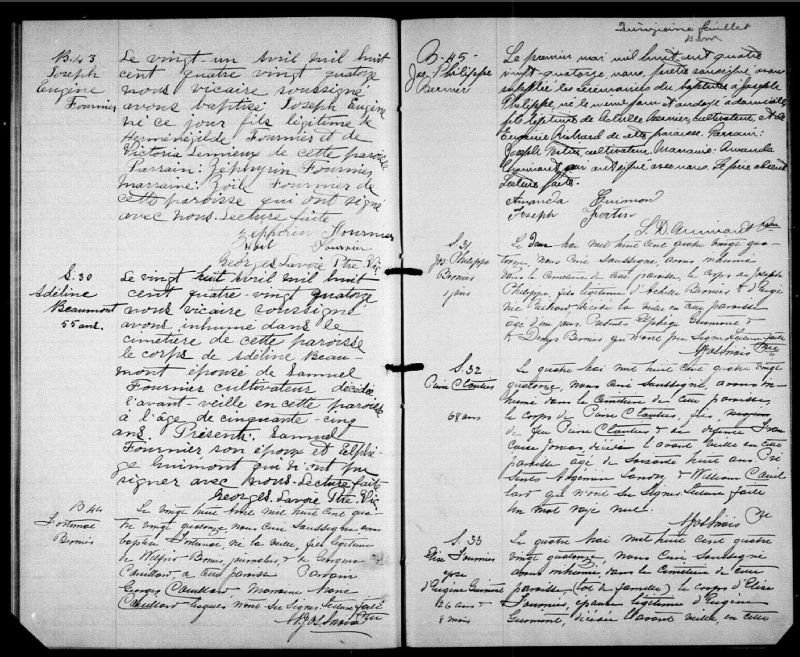 B-43
Joseph
Eugène
Fournier
Le vingt-un Avril mil huit
cent quatre vingt quatorze
nous vicaire soussigné
avons baptisé Joseph Eugène
né ce jour fils légitime de
Herménégilde Fournier et de
Victoria Lemieux de cette paroisse
Parrain: Zéphyrin Fournier
marraine: Zoïl Fournier de
cette paroisse qui ont signé
avec nous. Lecture faite
Zéphirin Fournier
Fournier
Georges Savoie Ptre Vic
S. 30
Adéline
Beaumont
55 ans.
Le vingt huit Avril mil huit
cent quatre-vingt quatorze
nous vicaire soussigné
avons inhumé dans le
cimetière de cette paroisse
le corps de Adéline Beau-
mont épouse de Samuel
Fournier cultivateur décédée
l'avant-veille en cette paroisse
à l'âge de cinquante-cinq
ans. Présents: Samuel
Fournier son époux et Elphè-
ge Guimont qui n'ont pu
signer avec nous. Lecture faite
Georges Savoie Ptre Vic
B 44
Bernier
Le vingt huit mil huit cent qua-
tre vingt quatorze, nous Curé Soussigné avons
baptisé né la veille, fils légitime
de Wilfrid Bernier, journalier, & de Georgina
Caouillard de cette paroisse Parrain
Georges Caouillard, Marraine
Caouillard lesquels n'ont su signer. Lecture faite
Quinzième feuillet
B-45-
Jos. Philippe
Bernier
Le premier mai mil huit cent quatre
vingt-quatorze nous, prêtre soussigné avons
suppléé les cérémonies du baptême à Joseph
Philippe, né le même jour et ondoyé à domicile
fils légitime de Achille Bernier, cultivateur et de
Eugénie de cette paroisse. Parrain:
Joseph Fortin, cultivateur. Marraine: Amanda
Guimont qui ont signé avec nous. Le père absent
Lecture faite.
Amanda Guimond
Joseph Fortin
S. 31
Jos Philippe
Bernier
Le deux Mai mil huit cent quatre vingt qua-
torze, nous Curé Soussigné, avons inhumé
dans le Cimetière de cette paroisse, le corps de Joseph
Philippe, fils légitime d'Achille Bernier & d'Eugé-
nie décédé la veille en cette paroisse
âgé d'un jour. Présents Elphège Guimont
& Bernier qui n'ont pu signer. Lecture faite
S. 32
Pierre Cloutier
68 ans
Le quatre Mai mil huit cent quatre vingt
quatorze, nous Curé Soussigné, avons in-
humé dans le Cimetière de cette paroisse,
le corps de Pierre Cloutier, fils
de feu Pierre Cloutier & de défunte
décédé l'avant veille en cette
paroisse âgé de soixante huit ans Pré-
sents Landry & William Caouil-
lard qui n'ont su signer. Lecture faite
un mot rayé nul.
S. 33
Elise Fournier
épse
d'Eugène Guimont
26 ans &
8 mois
Le quatre Mai mil huit cent quatre
vingt quatorze, nous Curé Soussigné
avons inhumé dans le Cimetière de cette
paroisse (lot de famille) le corps d'Elise
Fournier, épouse légitime d'Eugène
Guimont, décédée l'avant veille, en cette